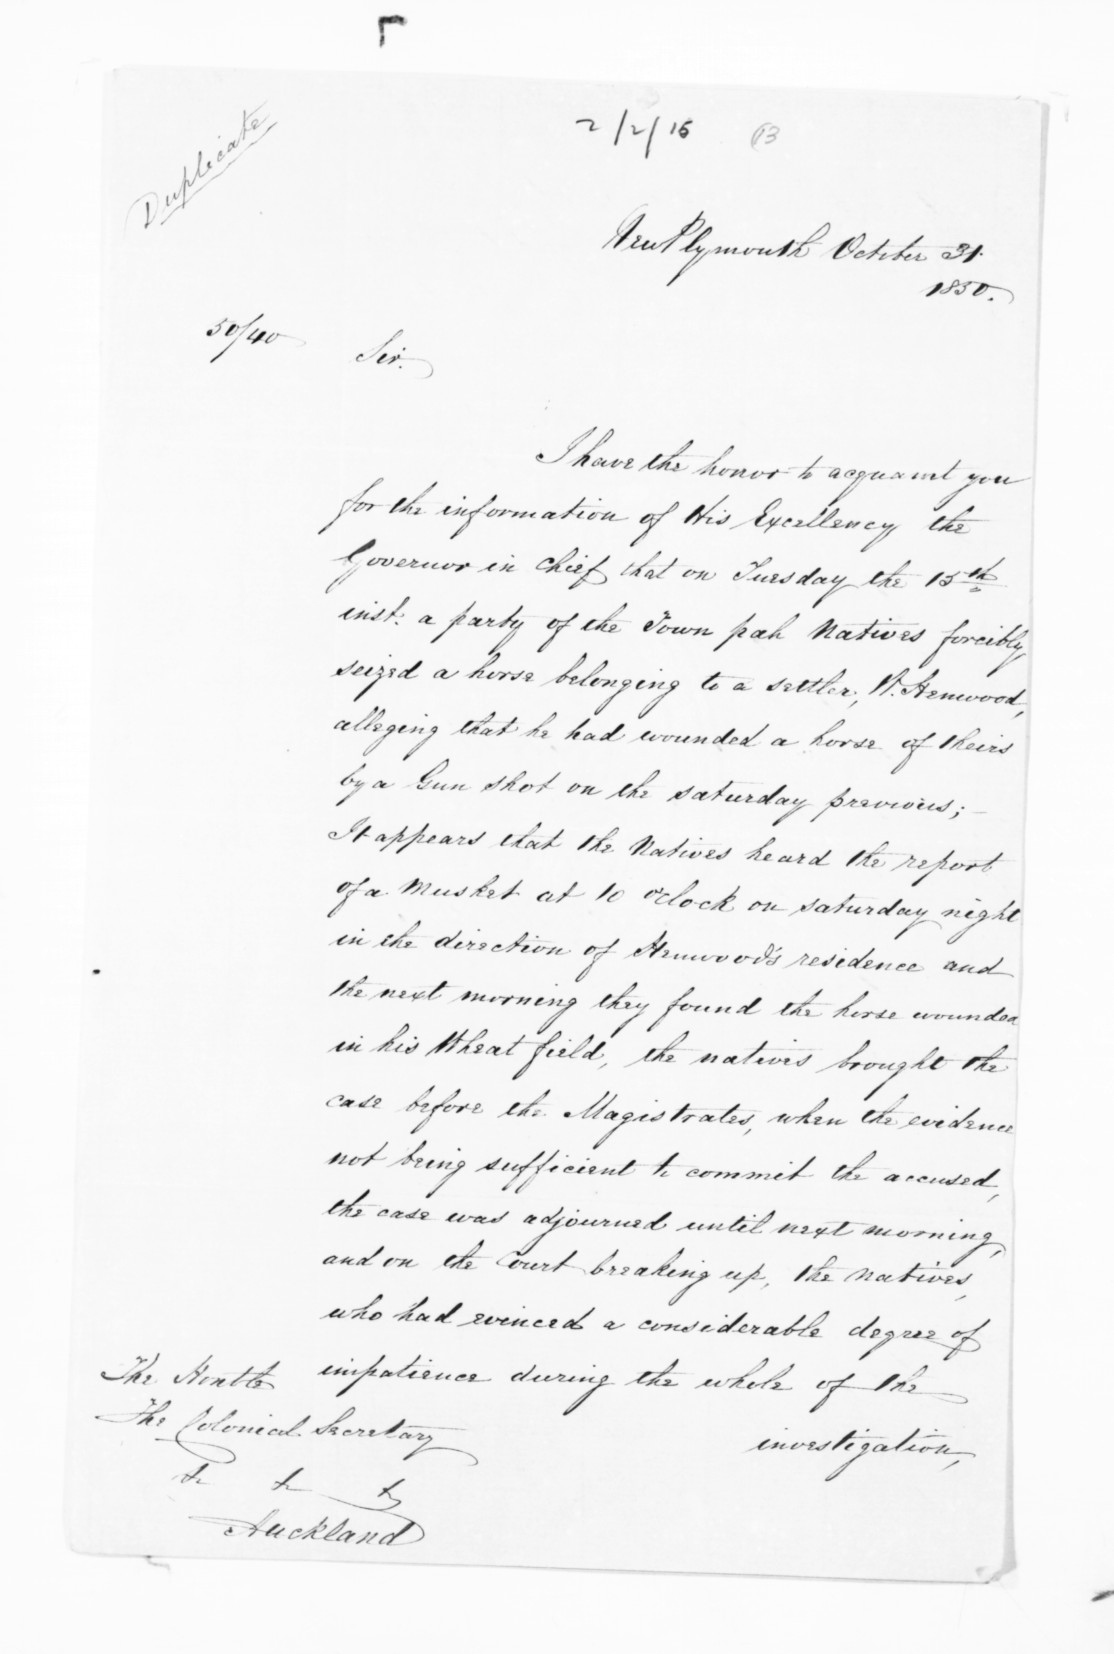 Duplicate
2/2/15 (13
New Plymouth October 31.
1850.
50/40
Sir.
I have the honor to acquaint you
for the information of His Excellency the
Governor in Chief that on Tuesday the 15th
inst. a party of the Town pah Natives forcibly
seized a horse belonging to a settler, W. Henwood,
alleging that he had wounded a horse of theirs
by a Gun shot on the saturday previous; -
It appears that the Natives heard the report
of a Musket at 10 o'clock on saturday night
in the direction of Henwood's residence and
the next morning they found the horse wounded
in his Wheat field, the natives brought the
case before the Magistrates, when the evidence
not being sufficient to commit the accused,
the case was adjourned until next morning,
and on the Court breaking up, the natives,
who had evinced a considerable degree of
impatience during the whole of the
investigation,
The Honble
The Colonial Secretary
&c &c &c
Auckland